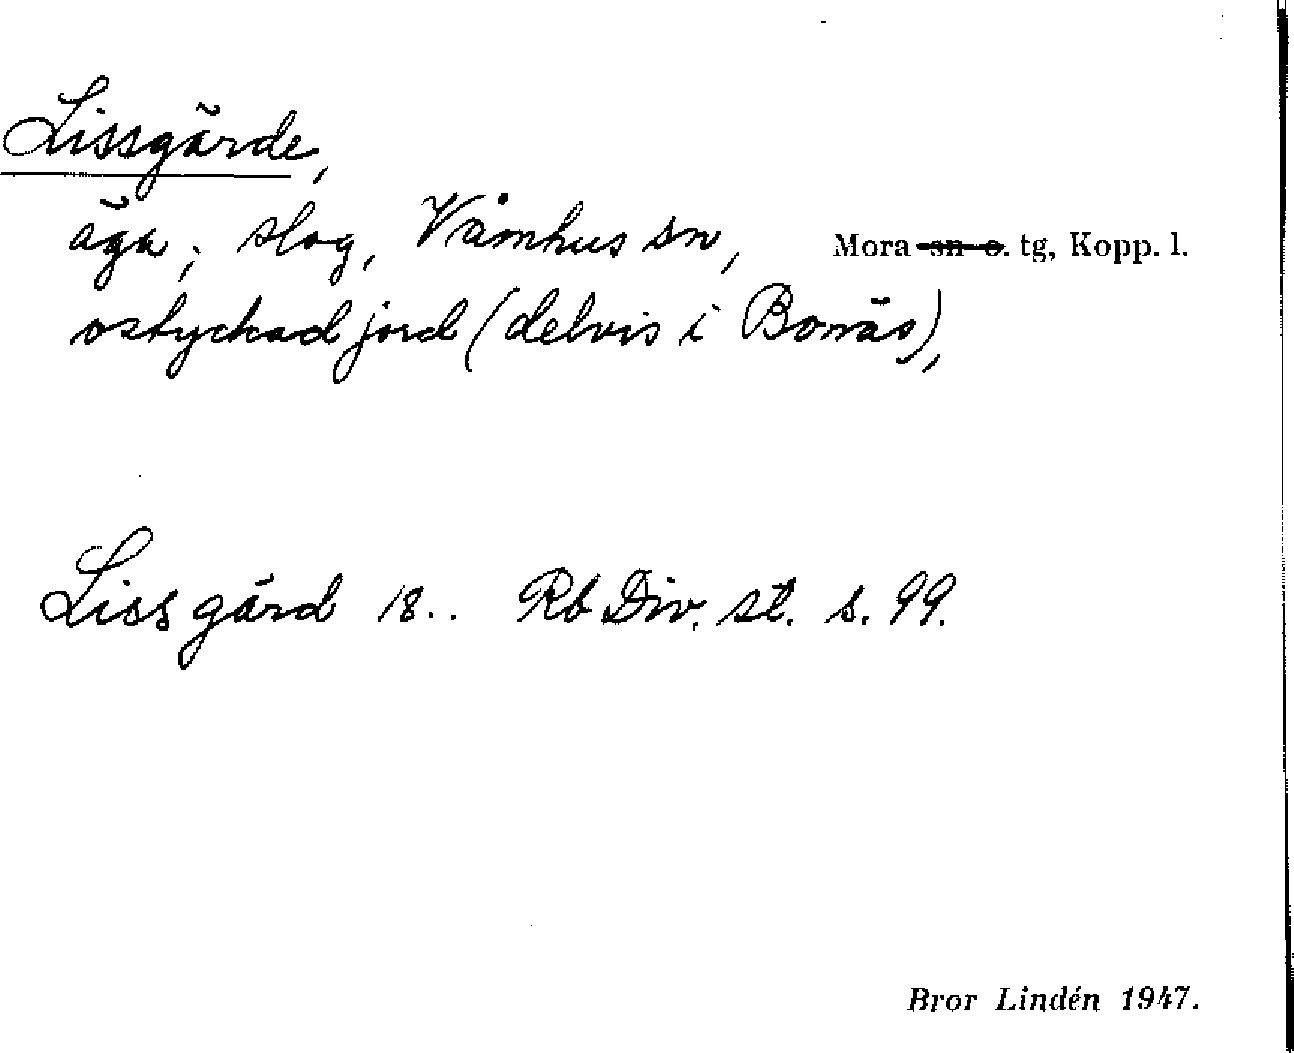 Lissgärde,
äga; slog, Våmhus sn, Mora sn o. tg, Kopp. l.
ostyckad jord (delvis i Bonäs),
Liss gärd 18.. Rb Div. st. s. 99.
Bror Lindén 1947.